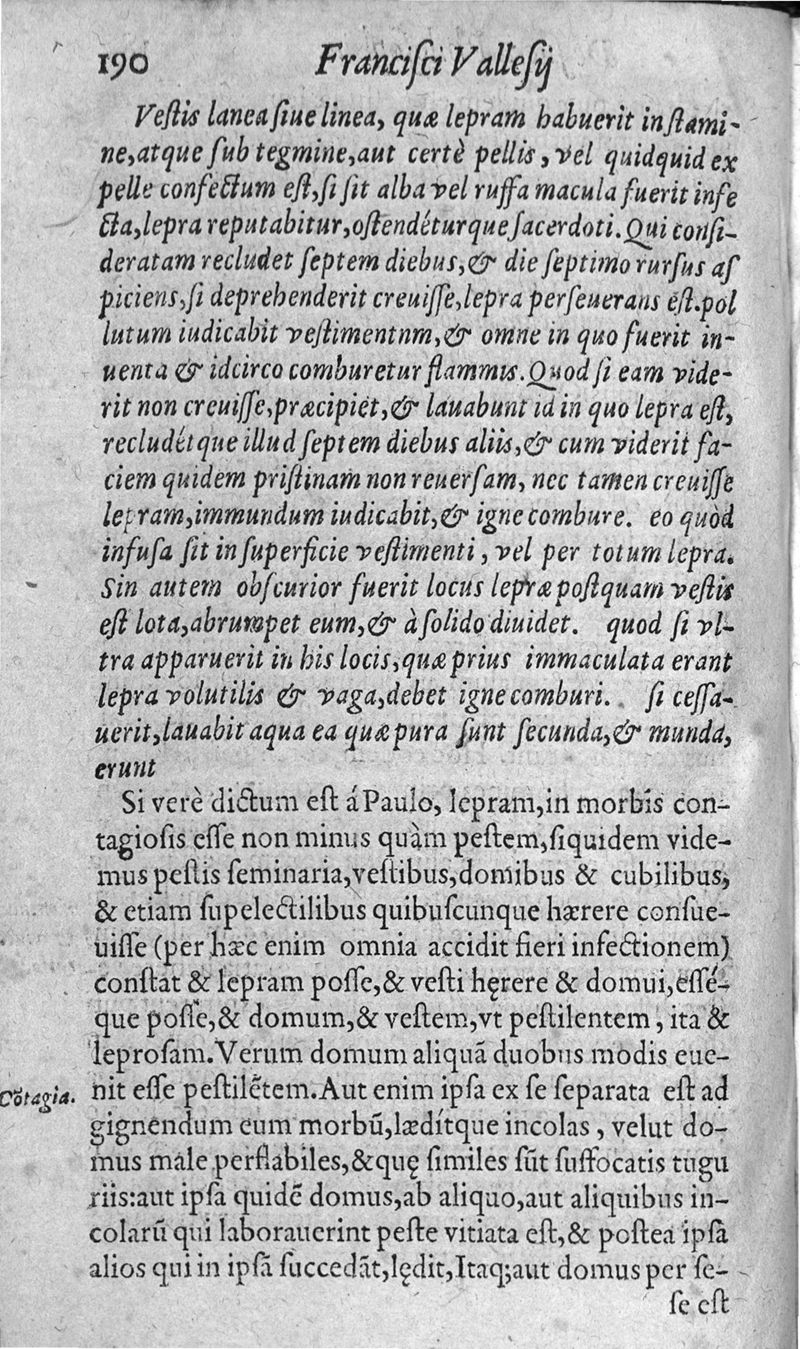 190 Franciſci Valleſij
Veſtis lanea ſiue linea, quæ lepram habuerit in ſtami-
ne,atque ſub tegmine,aut certè pellis, vel quidquid ex
pelle confectum eſt,ſi ſit alba vel ruffa macula fuerit infe
cta,lepra reputabitur,oſtendéturque ſacerdoti.Qui conſi-
deratam recludet ſeptem diebus,& die ſeptimo rurſus aſ
piciens,ſi deprehenderit creuiſſe,lepra perſeuerans eſt.pol
lutum iudicabit veſtimentnm,& omne in quo fuerit in-
uenta & idcirco comburetur flammis.Quod ſi eam vide-
rit non creuiſſe,præcipiet,& lauabunt id in quo lepra eſt,
recludétque illud ſeptem diebus aliis,& cum viderit fa-
ciem quidem priſtinam non reuerſam, nec tamen creuiſſe
lepram,immundum iudicabit,& igne combure. eo quòd
infuſa ſit in ſuperficie veſtimenti, vel per totum lepra.
Sin autem obſcurior fuerit locus lepræ poſtquam veſtis
eſt lota,abrumpet eum,& à ſolido diuidet. quod ſi vl-
tra apparuerit in his locis,quæ prius immaculata erant
lepra volutilis & vaga,debet igne comburi. ſi ceſſa-
uerit,lauabit aqua ea quæ pura ſunt ſecunda,& munda,
erunt
Si verè dictum eſt á Paulo, lepram,in morbis con-
tagioſis eſſe non minus quàm peſtem,ſiquidem vide-
mus peſtis ſeminaria,veſtibus,domibus & cubilibus,
& etiam ſupelectilibus quibuſcunque hærere conſue-
uiſſe (per hæc enim omnia accidit fieri infectionem)
conſtat & lepram poſſe,& veſti hęrere & domui,eſſé-
que poſſe,& domum,& veſtem,vt peſtilentem, ita &
leproſam.Verum domum aliquã duobus modis eue-
Cõtagia. nit eſſe peſtilẽtem.Aut enim ipſa ex ſe ſeparata eſt ad
gignendum eum morbũ,lædítque incolas, velut do-
mus male perflabiles,&quę ſimiles ſũt ſuffocatis tugu
riis:aut ipſa quidẽ domus,ab aliquo,aut aliquibus in-
colarũ qui laborauerint peſte vitiata eſt,& poſtea ipſa
alios qui in ipſã ſuccedãt,lędit,Itaq;aut domus per ſe-
ſe eſt